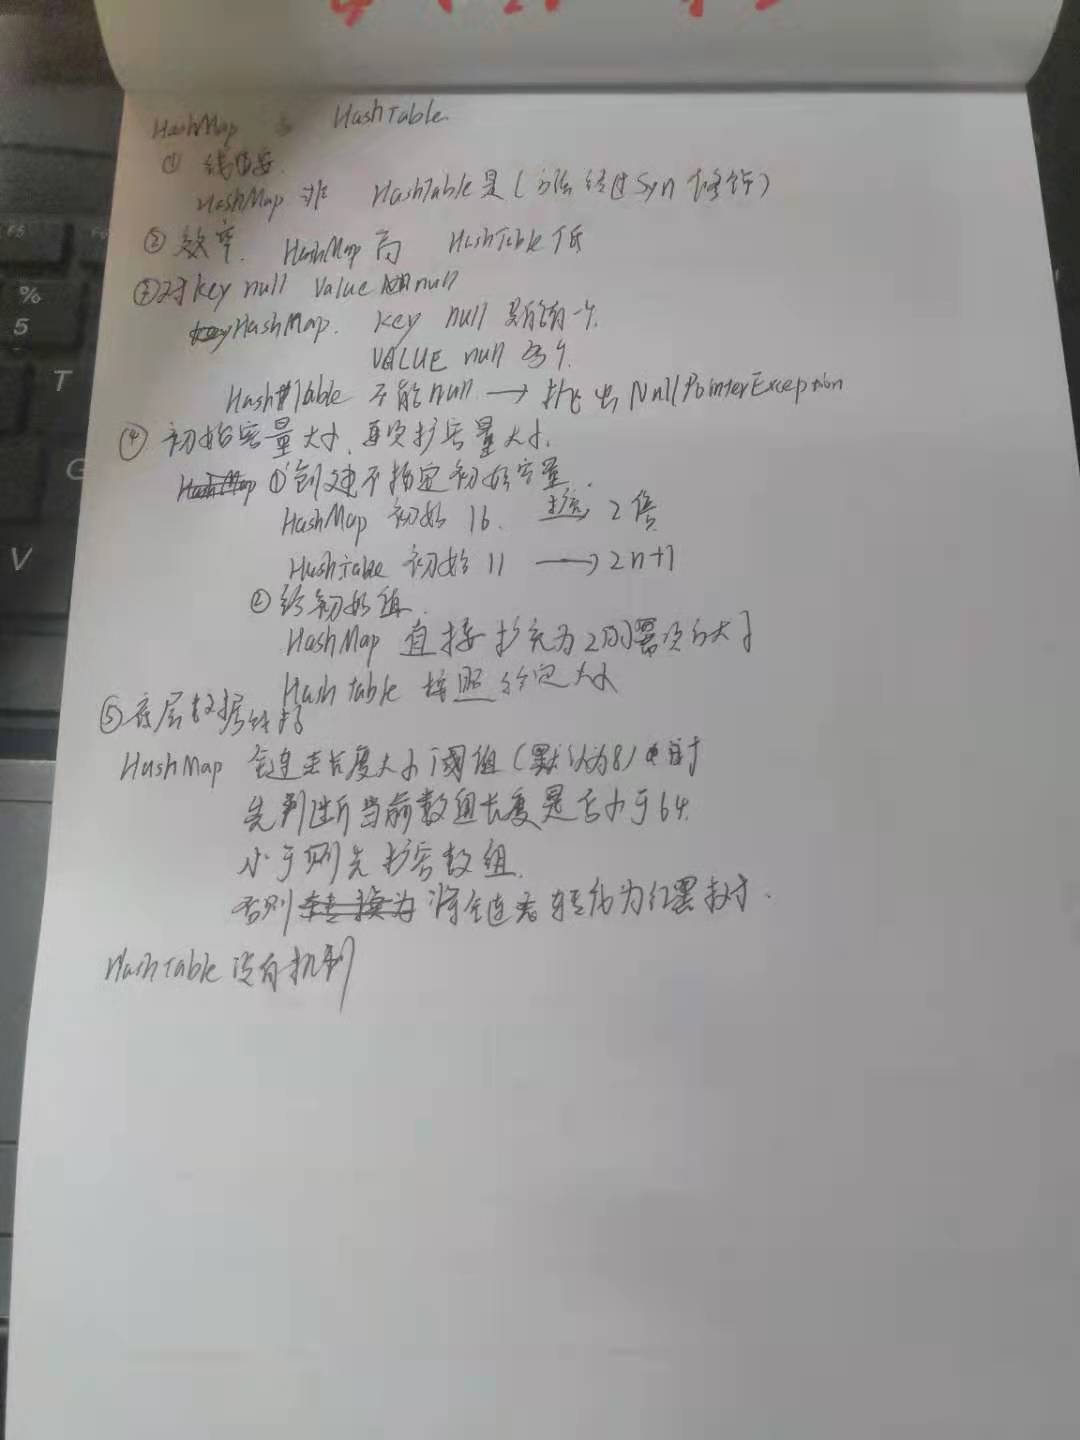 HashMap 与 HashTable.
① 线程安.
HashMap 非 HashTable是(方法经过Syn修饰)
② 效率. HashMap 高 HashTable 低
③对key null Value null
HashMap. key null 只能有一个.
VALUE null 多个.
HashTable 不能null → 抛出 NullPointerException
④ 初始容量大小,再次扩容量大小.
①创建不指定初始容量.
HashMap 初始 16. 扩充 2倍
Hashtable 初始 11 → 2n+1
② 给初始值.
HashMap 直接扩充为2的幂次方大小
Hashtable 按照给定大小
⑤底层数据结构
HashMap 链表长度大于阈值(默认为8)时
先判断当前数组长度是否小于64.
小于则先扩容数组.
否则 将链表转化为红黑树.
HashTable 没有机制